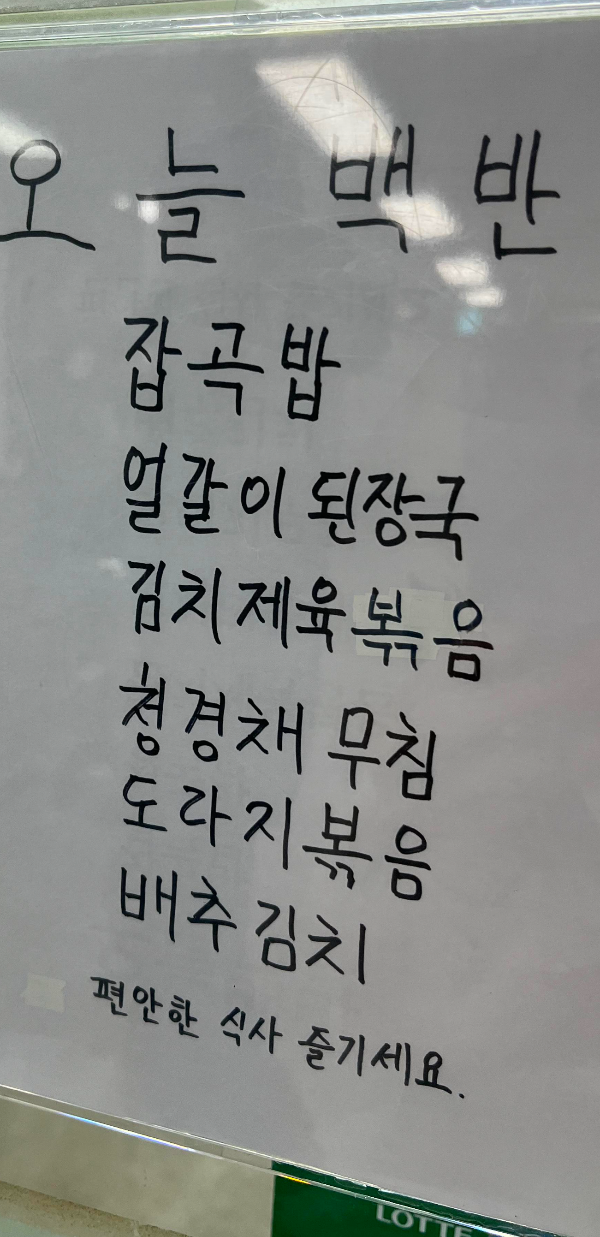 오늘 백반
잡곡밥
얼갈이 된장국
김치제육볶음
청경채 무침
도라지볶음
배추김치
편안한 식사 즐기세요.
LOTTE